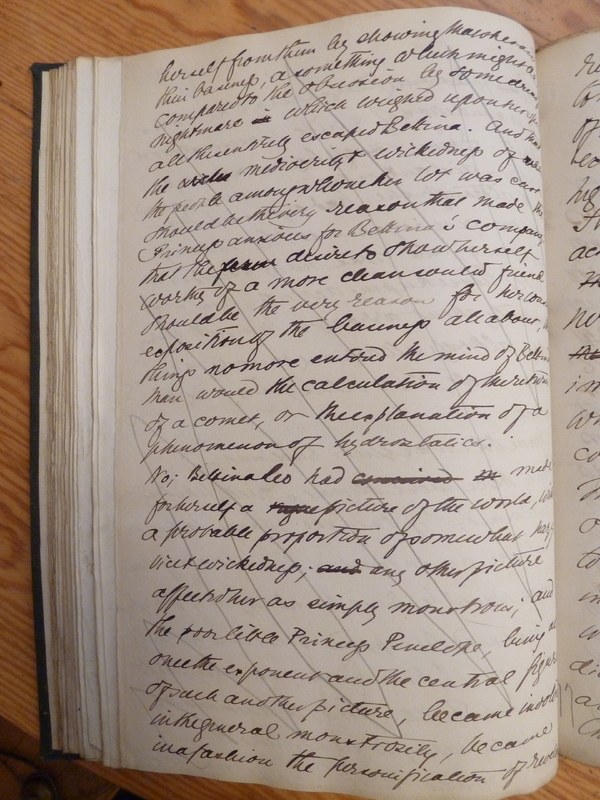 herself from them by showing
their baseness, a something which might
compared to the obsession by some
nightmare which weighed upon her
all this entirely escaped Bettina. And that
the mediocrity & wickedness of
the people among whom her lot was cast
should be the very reason that made the
Princess anxious for Bettina's company
that the desire to show herself
worthy of a more clean souled friend
should be the very reason for her
exposition of the baseness all about,
things no more entered the mind of
than would the calculation of the return
of a comet, or the explanation of a
phenomenon of hydrostatics.
No; Bettina had conceived made
for herself a picture of the world, with
a probable proportion of somewhat hazy
vice & wickedness; and any other picture
affected her as simply monstrous; and
the Princess Penelope, being at
once the exponent and the central figure
of such another picture, became involved
in the general monstrosity, became
in a fashion the personification of